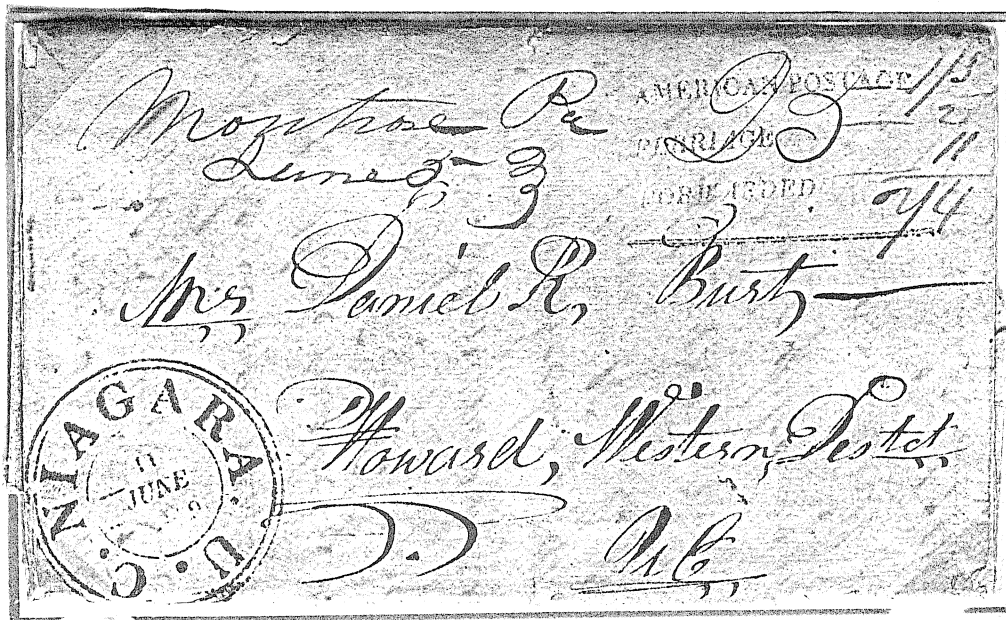 Montrose Pa
June 5
AMERICAN POSTAGE 1/5
FERRIAGE 2
FORWARDED 11
Mrs Daniel R, Burt,
Howard, Western, Distd,
U.C,
NIAGARA. U. C.
11
JUNE